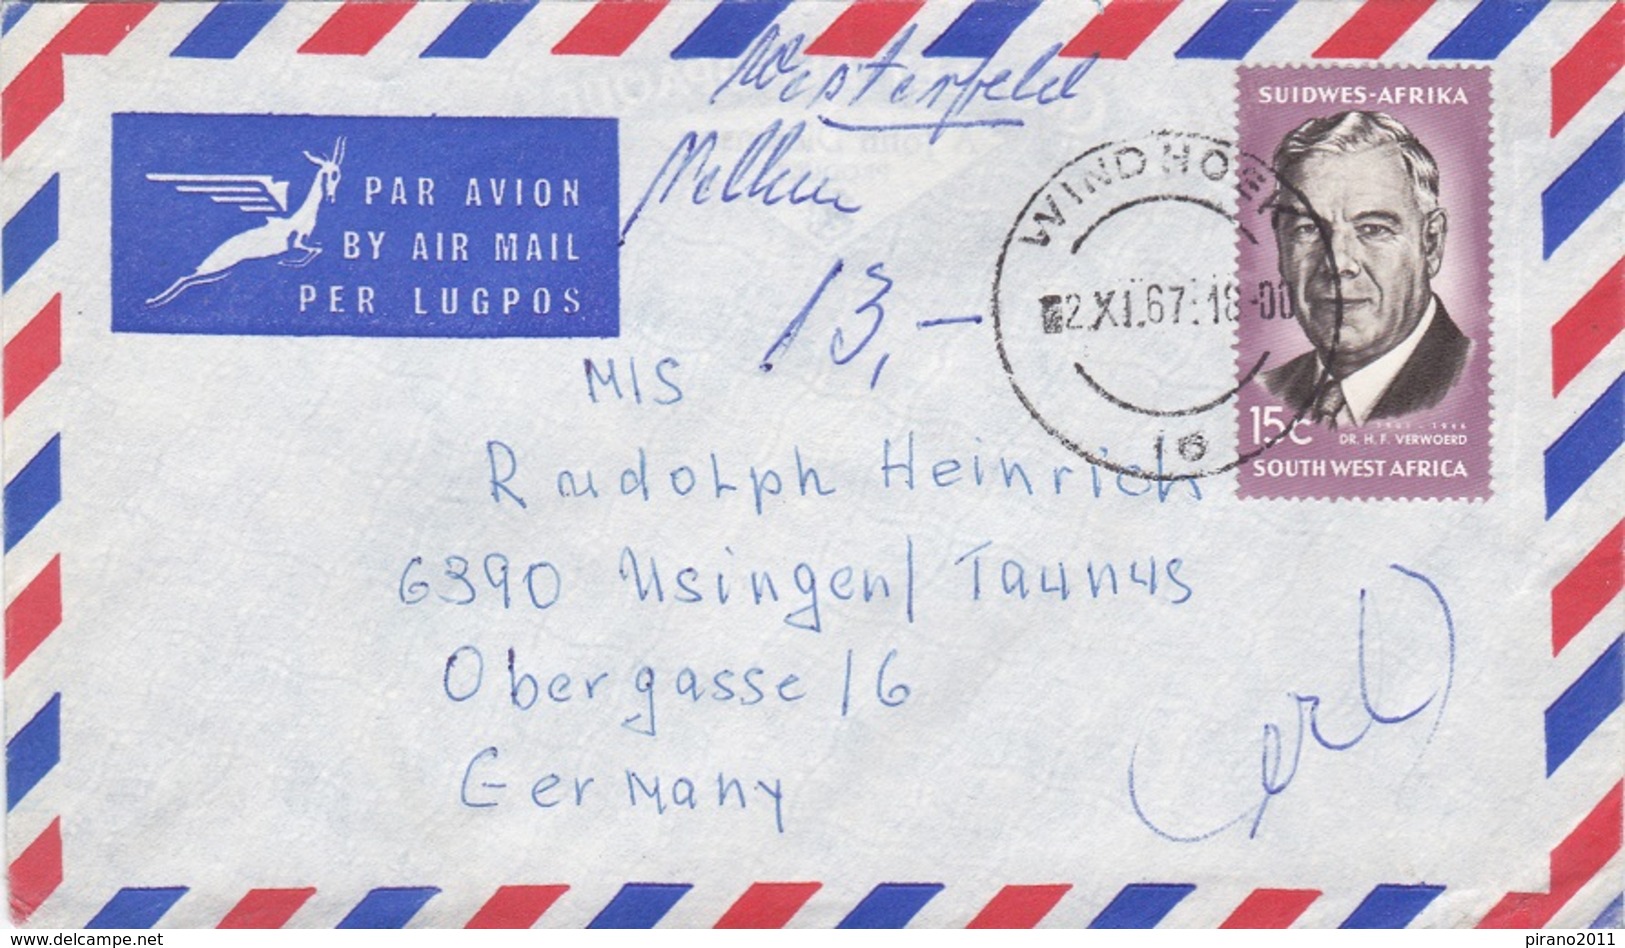 Westerfeld
PAR AVION
BY AIR MAIL
PER LUGPOS
13,-
SUIDWES-AFRIKA
WINDHOEK
2.XI.67.18-00
15c
DR. H. F. VERWOERD
SOUTH WEST AFRICA
M/S
Rudolph Heinrich
6390 Usingen/Taunus
Obergasse 16
Germany
www.delcampe.net
pirano2011